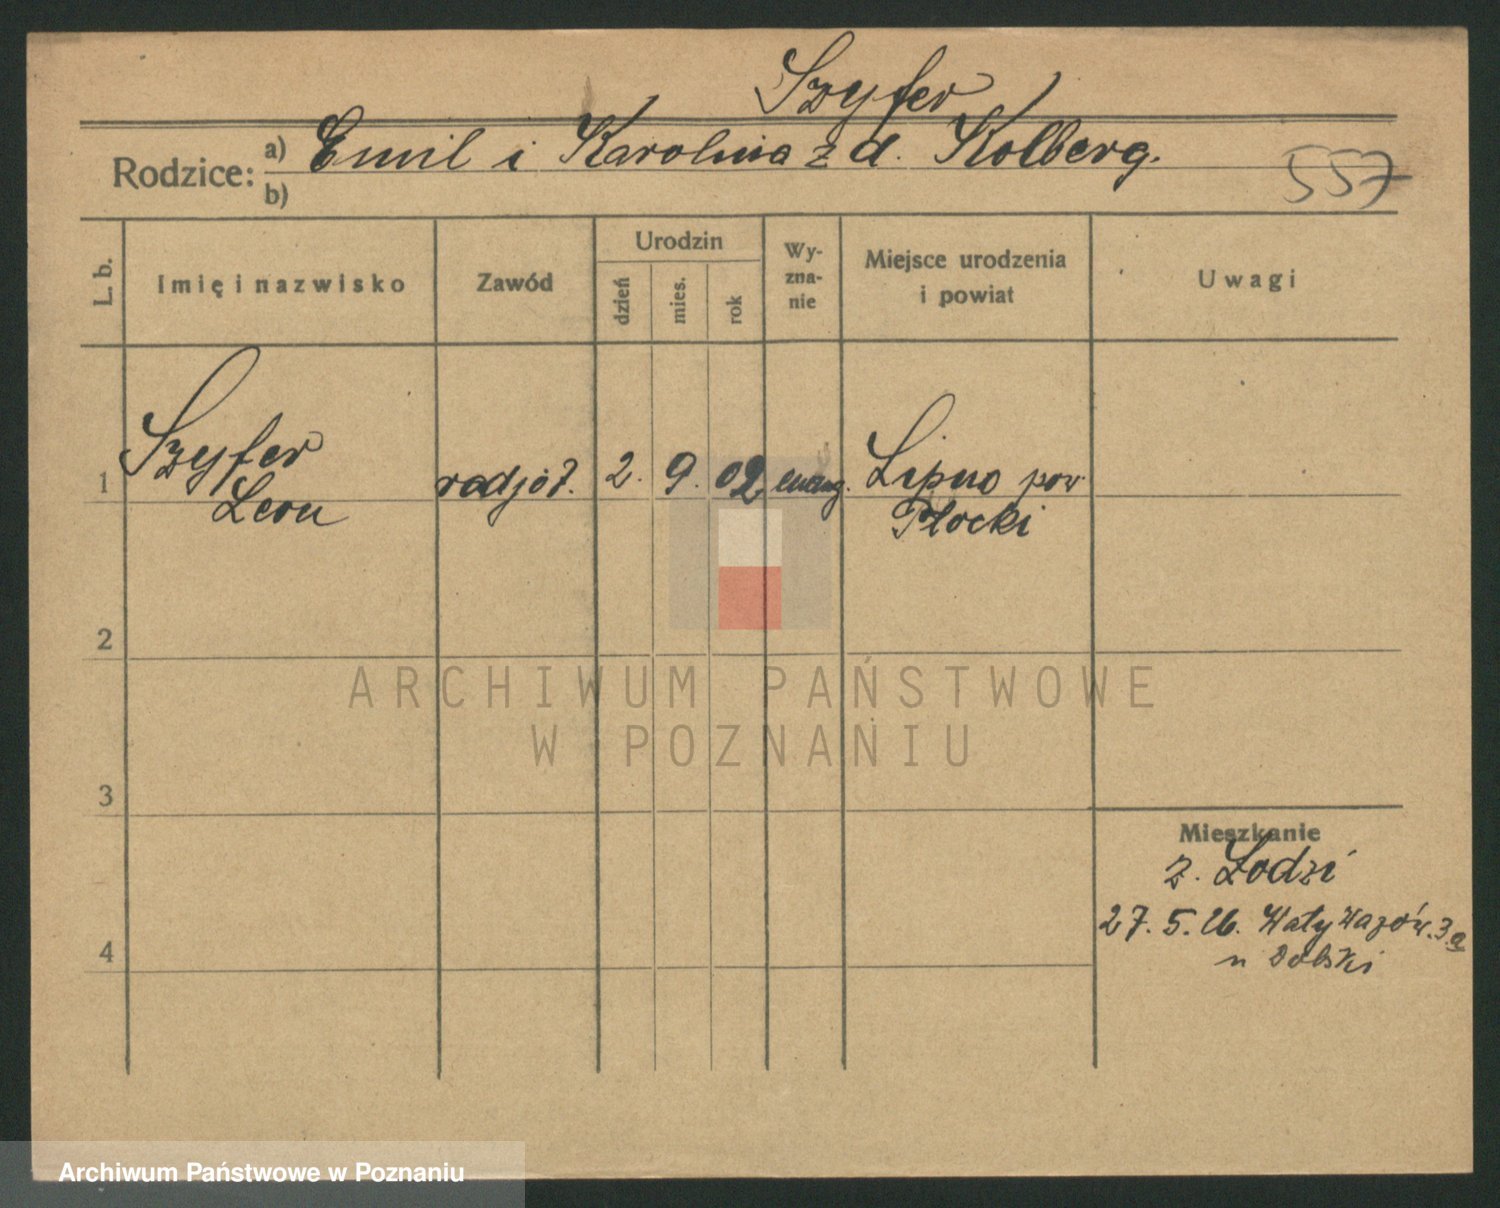 Szyfer
Rodzice: a) Emil i Karolina z d. Kolberg.
b)
557
L. b.
Imię i nazwisko
Zawód
Urodzin
dzień
mies.
rok
Wy-
zna-
nie
Miejsce urodzenia
i powiat
Uwagi
1 Szyfer
Leon
2. 9. 02 ewang. Lipno pow.
Płocki
2
3
4
Mieszkanie
z. Łodzi
27. 5. 26. Wały Wazów. 3.a
u Dolski
ARCHIWUM PAŃSTWOWE
W POZNANIU
Archiwum Państwowe w Poznaniu